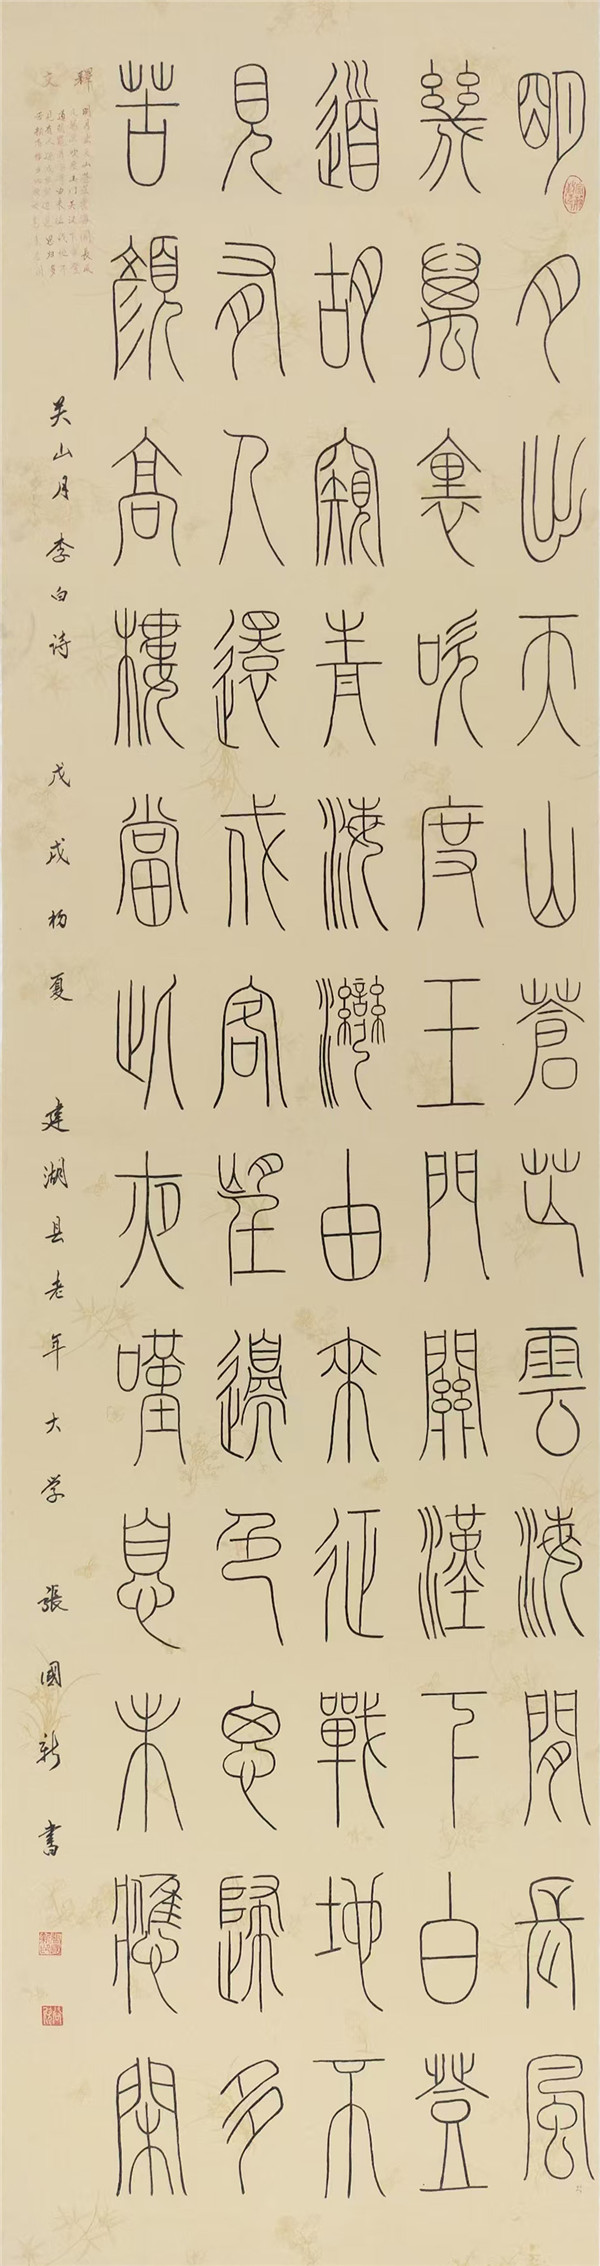 明月出天山蒼芒雲海間長風
幾萬裏吹度玉門關漢下白登
道胡窺青海灣由來征戰地不
見有人還戍客望邊色思歸多
苦顏高樓當此夜嘆息未應閑
釋文
关山月 李白诗 戊戌杨夏 建湖县老年大学 張國新書